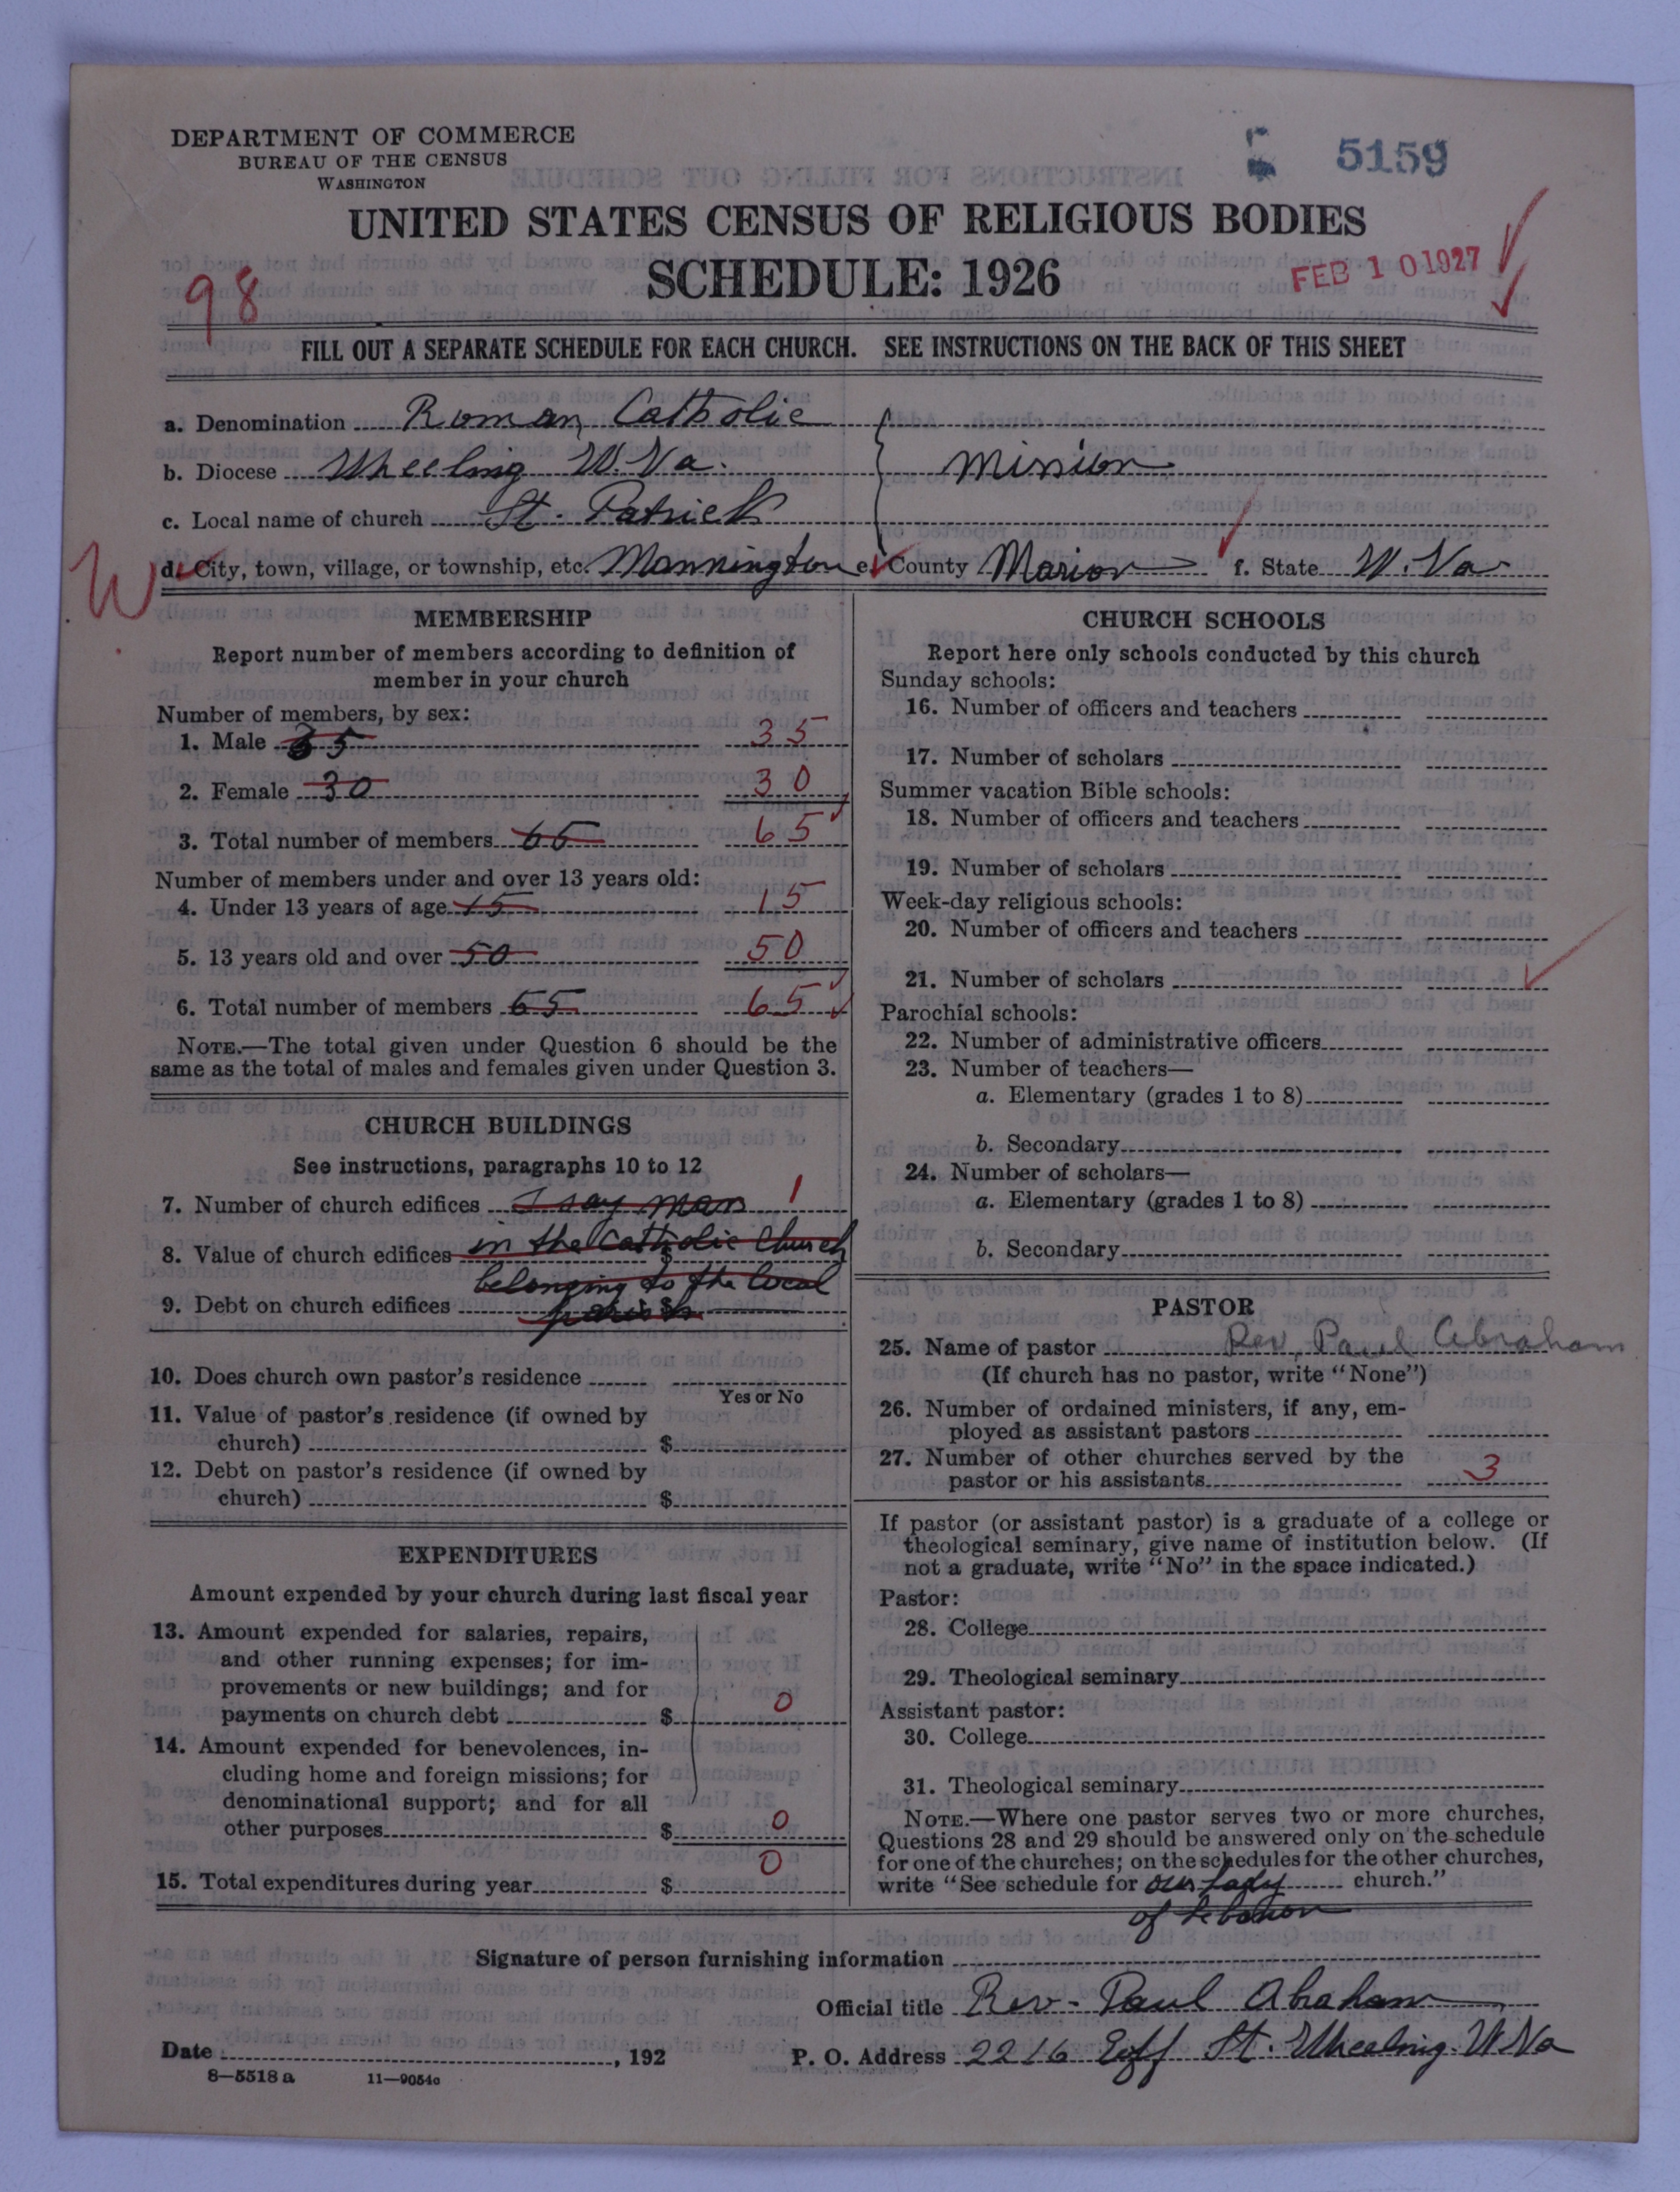 DEPARTMENT OF COMMERCE
BUREAU OF THE CENSUS
WASHINGTON
5159
UNITED STATES CENSUS OF RELIGIOUS BODIES
SCHEDULE: 1926
FEB 10 1927
98
FILL OUT A SEPARATE SCHEDULE FOR EACH CHURCH. SEE INSTRUCTIONS ON THE BACK OF THIS SHEET
a. Denomination Roman Catholic
b. Diocese Wheeling W. Va. Mission
c. Local name of church St. Patrick
W d. City, town, village, or township, etc. Mannington e. County Marion f. State W. Va
MEMBERSHIP
Report number of members according to definition of
member in your church
Number of members, by sex:
1. Male 35 35
2. Female 30 30
3. Total number of members 65 65
Number of members under and over 13 years old:
4. Under 13 years of age 15 15
5. 13 years old and over 50 50
6. Total number of members 65 65
NOTE.—The total given under Question 6 should be the
same as the total of males and females given under Question 3.
CHURCH BUILDINGS
See instructions, paragraphs 10 to 12
7. Number of church edifices I say mass 1
8. Value of church edifices in the Catholic Church $
belonging to the local
9. Debt on church edifices parish $
10. Does church own pastor's residence
Yes or No
11. Value of pastor's residence (if owned by
church) $
12. Debt on pastor's residence (if owned by
church) $
EXPENDITURES
Amount expended by your church during last fiscal year
13. Amount expended for salaries, repairs,
and other running expenses; for im-
provements or new buildings; and for
payments on church debt $ 0
14. Amount expended for benevolences, in-
cluding home and foreign missions; for
denominational support; and for all
other purposes $ 0
15. Total expenditures during year $ 0
CHURCH SCHOOLS
Report here only schools conducted by this church
Sunday schools:
16. Number of officers and teachers
17. Number of scholars
Summer vacation Bible schools:
18. Number of officers and teachers
19. Number of scholars
Week-day religious schools:
20. Number of officers and teachers
21. Number of scholars
Parochial schools:
22. Number of administrative officers
23. Number of teachers—
a. Elementary (grades 1 to 8)
b. Secondary
24. Number of scholars—
a. Elementary (grades 1 to 8)
b. Secondary
PASTOR
25. Name of pastor Rev. Paul Abraham
(If church has no pastor, write "None")
26. Number of ordained ministers, if any, em-
ployed as assistant pastors
27. Number of other churches served by the
pastor or his assistants 3
If pastor (or assistant pastor) is a graduate of a college or
theological seminary, give name of institution below. (If
not a graduate, write "No" in the space indicated.)
Pastor:
28. College
29. Theological seminary
Assistant pastor:
30. College
31. Theological seminary
NOTE.—Where one pastor serves two or more churches,
Questions 28 and 29 should be answered only on the schedule
for one of the churches; on the schedules for the other churches,
write "See schedule for our Lady church."
of Lebanon
Signature of person furnishing information
Official title Rev. Paul Abraham
Date , 192
P. O. Address 2216 Eoff St. Wheeling. W Va
8—5518 a 11—9054c